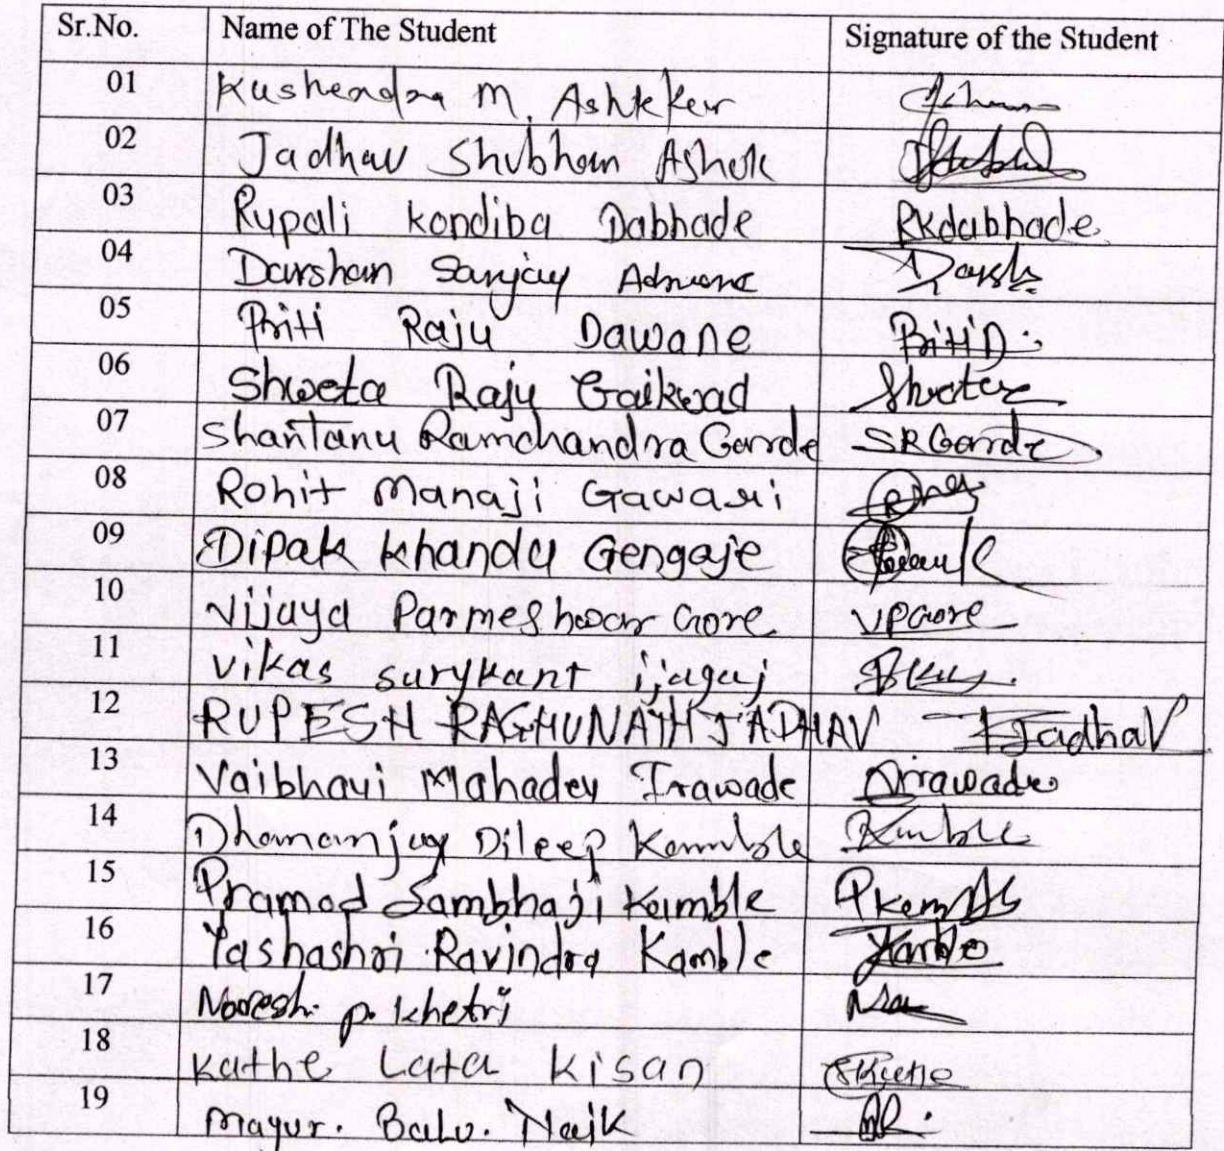 Sr.No. Name of The Student Signature of the Student
01 Kushendra M. Ashtekar
02 Jadhav Shubham Ashok
03 Rupali kondiba Dabhade RKdabhade
04 Darshan Sanjay Darsh
05 Priti Raju Dawane PritiD.
06 Shweta Raju Gaikwad Shweta
07 Shantanu Ramchandra Garde SRGarde
08 Rohit Manaji Gawari
09 Dipak Khandu Gengaje
10 Vijaya Parmeshwar Gore VPGore
11 Vikas surykant ijagaj
12 RUPESH RAGHUNATH JADHAV Jadhav
13 Vaibhavi Mahadev Irawade Irawade
14 Dhananjay Dileep Kamble Kamble
15 Pramod Sambhaji Kamble
16 Yashashri Ravindra Kamble
17 Naresh. p. khetri
18 Kathe Lata Kisan
19 Mayur. Balu. Naik